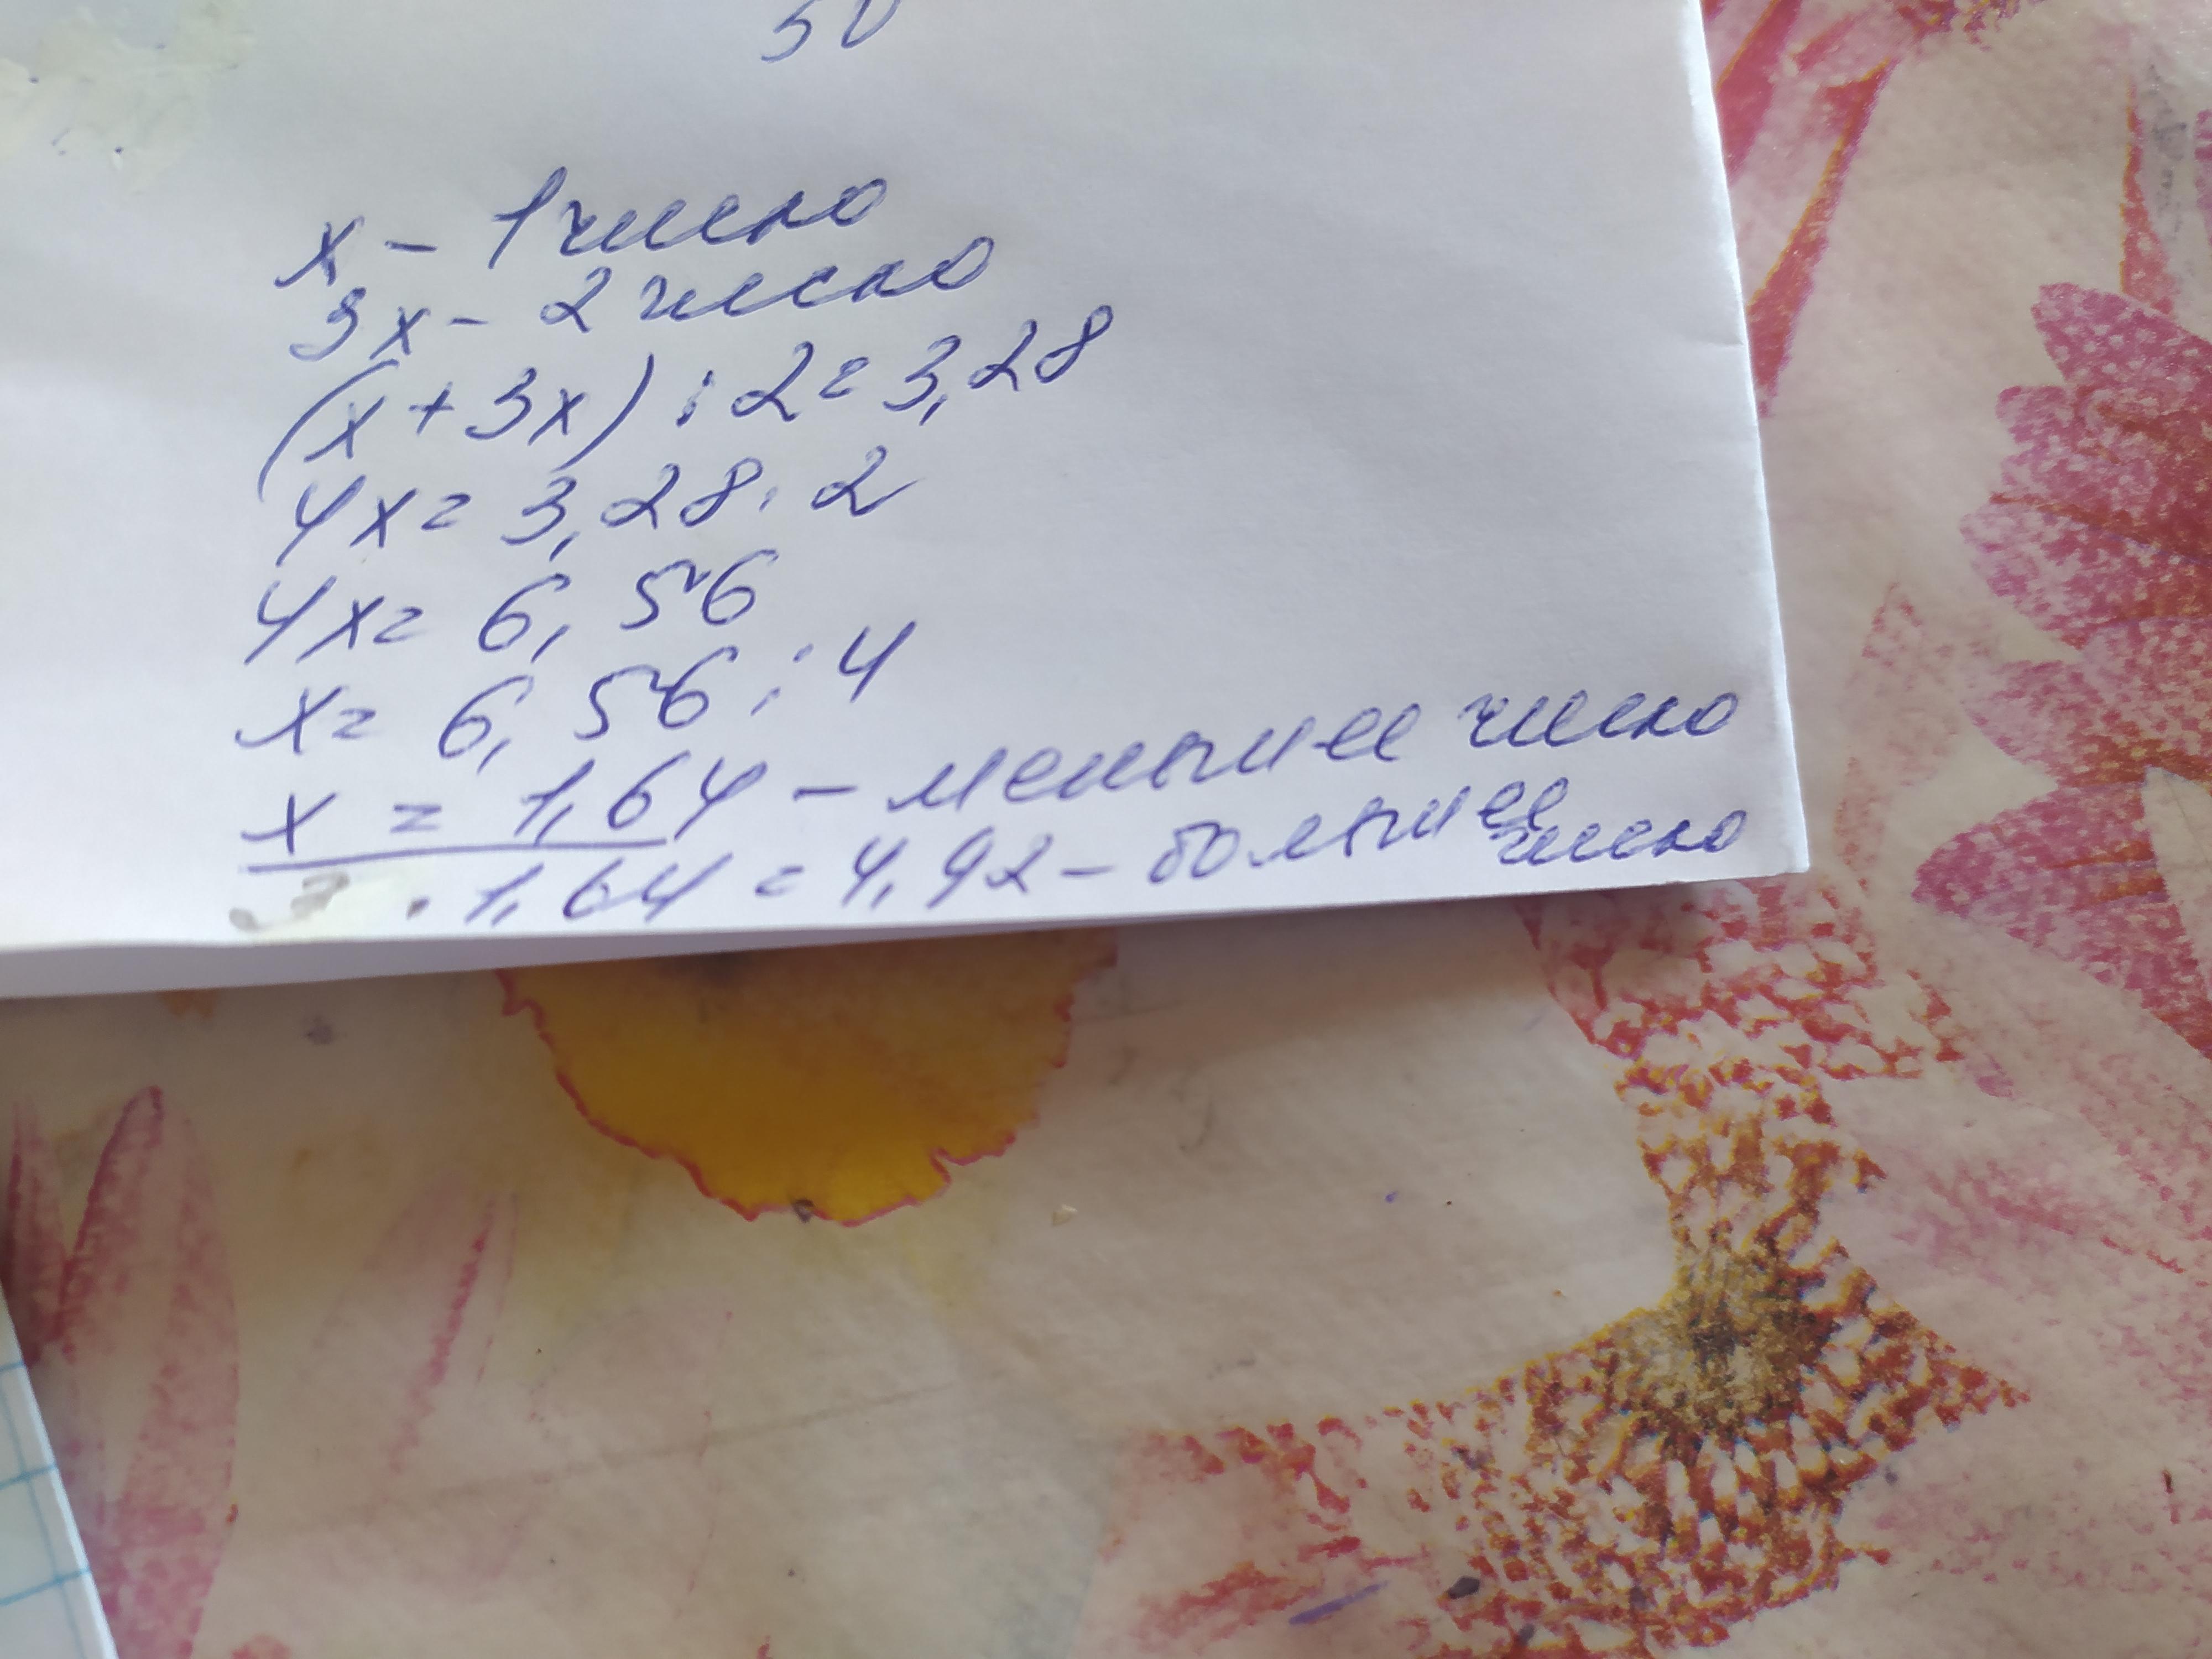 50
x - 1 число
3x - 2 число
(x + 3x) : 2 = 3,28
4x = 3,28 · 2
4x = 6,56
x = 6,56 : 4
x = 1,64 - меньшее число
3 · 1,64 = 4,92 - большее число